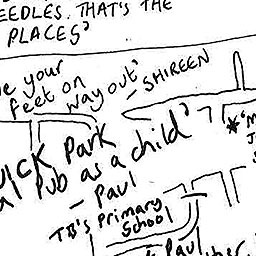 EEDLES. THAT'S THE
PLACES'
e your
feet on
way out'
- SHIREEN
ICK Park
Pub as a child'
- Paul
TB's Primary
School
Paul